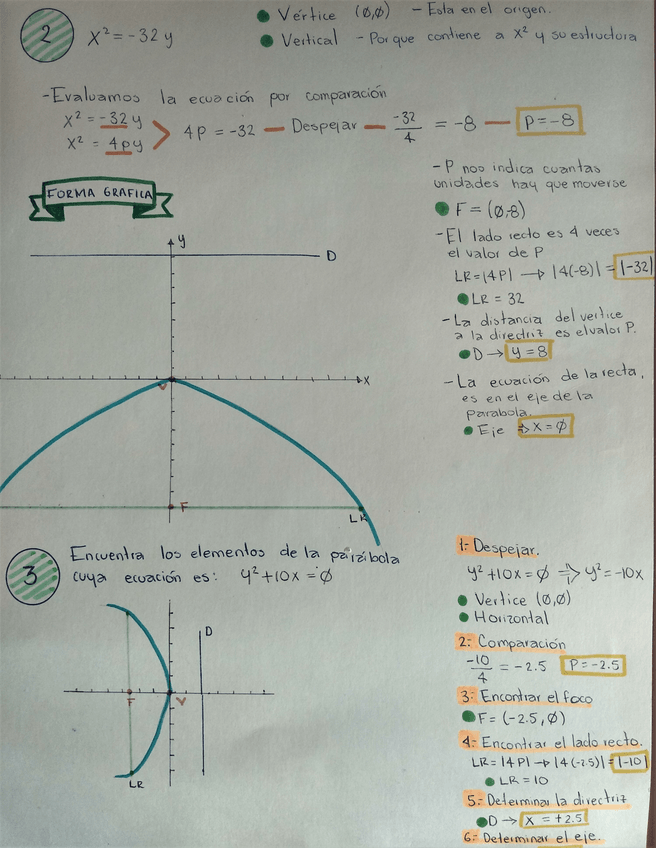 2
x² = -32y
Vértice (0,0) - Esta en el origen.
Vertical - Porque contiene a x² y su estructura
-Evaluamos la ecuación por comparación
x² = -32y
x² = 4py
4P = -32 — Despejar — -32/4 = -8 — P = -8
FORMA GRAFICA
- P nos indica cuantas
unidades hay que moverse
F = (0,-8)
-El lado recto es 4 veces
el valor de P
LR = |4P| → |4(-8)| = |-32|
LR = 32
-La distancia del vertice
a la directriz es el valor P.
D → y = 8
-La ecuación de la recta,
es en el eje de la
parabola.
Eje ⇒ x = 0
y
D
x
V
F
LR
3
Encuentra los elementos de la parábola
cuya ecuación es: y² + 10x = 0
D
F
V
LR
1- Despejar.
y² + 10x = 0 ⇒ y² = -10x
Vertice (0,0)
Horizontal
2- Comparación
-10/4 = -2.5 P = -2.5
3- Encontrar el foco
F = (-2.5, 0)
4- Encontrar el lado recto.
LR = |4P| → |4(-2.5)| = |-10|
LR = 10
5- Determinar la directriz
D → x = +2.5
6- Determinar el eje.